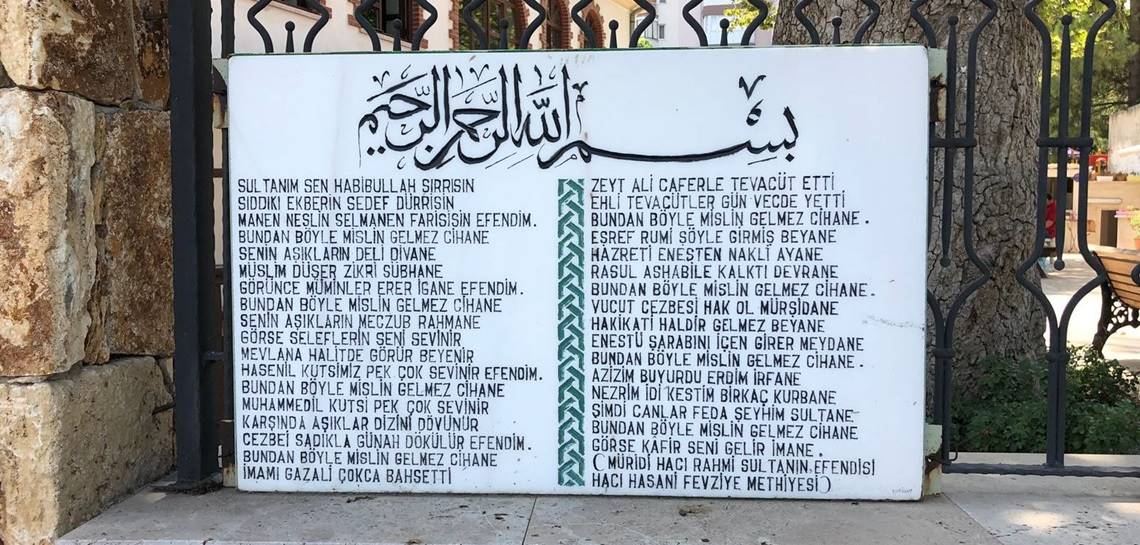 بسم الله الرحمن الرحيم
SULTANIM SEN HABİBULLAH SIRRISIN
SIDDIKI EKBERİN SEDEF DÜRRİSİN
MANEN NESLİN SELMANEN FARİSİSİN EFENDİM.
BUNDAN BÖYLE MİSLİN GELMEZ CİHANE
SENİN AŞIKLARIN DELİ DİVANE
MÜSLİM DÜŞER ZİKRİ SÜBHANE
GÖRÜNCE MÜMİNLER ERER İGANE EFENDİM.
BUNDAN BÖYLE MİSLİN GELMEZ CİHANE
SENİN AŞIKLARIN MECZUB RAHMANE
GÖRSE SELEFLERİN SENİ SEVİNİR
MEVLANA HALİTDE GÖRÜR BEYENİR
HASENİL KUTSİMİZ PEK ÇOK SEVİNİR EFENDİM.
BUNDAN BÖYLE MİSLİN GELMEZ CİHANE
MUHAMMEDİL KUTSİ PEK ÇOK SEVİNİR
KARŞINDA AŞIKLAR DİZİNİ DÖVÜNÜR
CEZBEİ SADIKLA GÜNAH DÖKÜLÜR EFENDİM.
BUNDAN BÖYLE MİSLİN GELMEZ CİHANE
İMAMI GAZALİ ÇOKCA BAHSETTİ
ZEYT ALİ CAFERLE TEVACÜT ETTİ
EHLİ TEVACÜTLER GÜN VECDE YETTİ
BUNDAN BÖYLE MİSLİN GELMEZ CİHANE.
EŞREF RUMİ ŞÖYLE GİRMİŞ BEYANE
HAZRETİ ENESTEN NAKLİ AYANE
RASUL ASHABİLE KALKTI DEVRANE
BUNDAN BÖYLE MİSLİN GELMEZ CİHANE.
VUCUT CEZBESİ HAK OL MÜRŞİDANE
HAKİKATİ HALDİR GELMEZ BEYANE
ENESTÜ ŞARABINI İÇEN GİRER MEYDANE
BUNDAN BÖYLE MİSLİN GELMEZ CİHANE.
AZİZİM BUYURDU ERDİM İRFANE
NEZRİM İDİ KESTİM BİRKAÇ KURBANE
ŞİMDİ CANLAR FEDA ŞEYHİM SULTANE
BUNDAN BÖYLE MİSLİN GELMEZ CİHANE
GÖRSE KAFİR SENİ GELİR İMANE.
(MÜRİDİ HACI RAHMİ SULTANIN EFENDİSİ
HACI HASANİ FEVZİYE METHİYESİ)